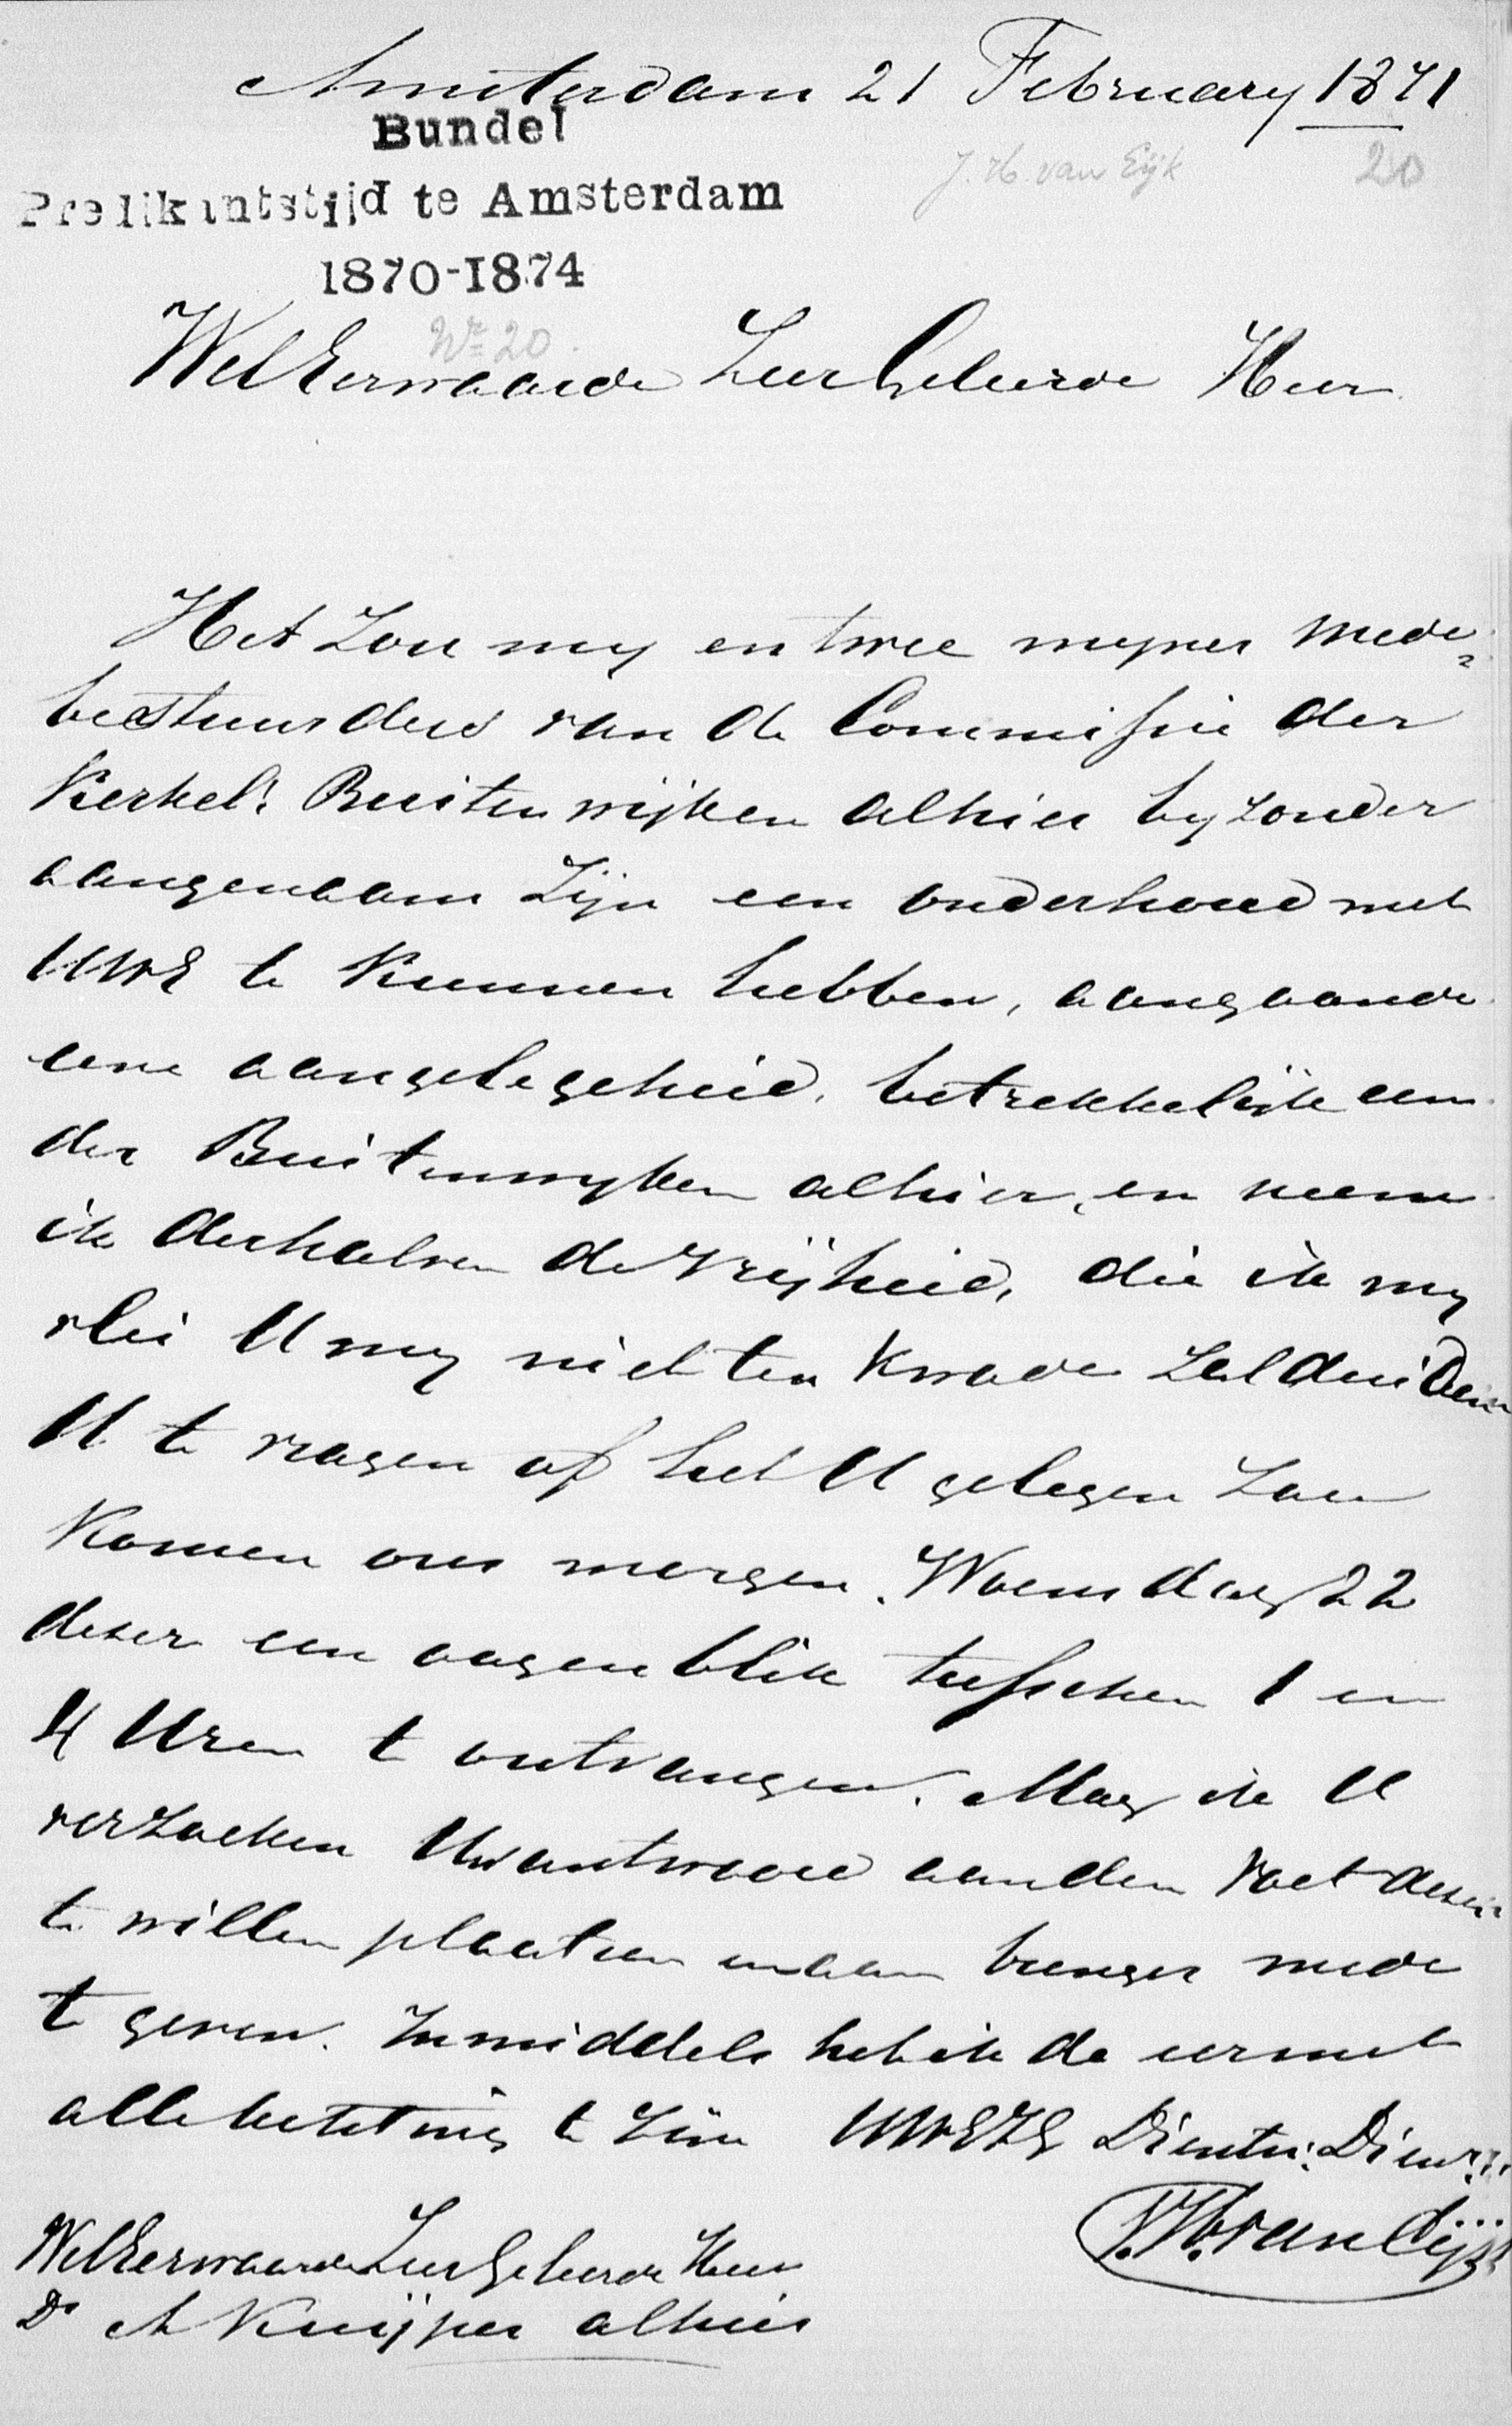 Amsterdam 21 February 1871
Bundel
J. H. van Eijk 20
Predikantstijd te Amsterdam
1870-1874
No 20.
WelEerwaarde ZeerGeleerde Heer
Het zou my en twee myner mede„
bestuurders van de Commissie der
Kerkel: Buitenwijken alhier byzonder
aangenaam zijn een onderhoud met
UWE te kunnen hebben, aangaande
eene aangelegeheid, betrekkelijk een
der Buitenwyken alhier, en neem
ik derhalven de vrijheid, die ik my
vlei U my niet ten kwade zal duiden
U te vragen of het U gelegen zou
komen ons morgen. Woensdag 22
dezer een oogenblik tusschen 1 en
4 Uren te ontvangen. Mag ik U
verzoeken Uw antwoord aan den voet dezer
te willen plaatsen en aan brenger mede
te geven. Inmiddels heb ik de eer met
alle achting te zijn UWEZG Dienstw: Dienr:
J. H. van Eijk
WelEerwaarde ZeerGeleerde Heer
Dr A Kuijper alhier